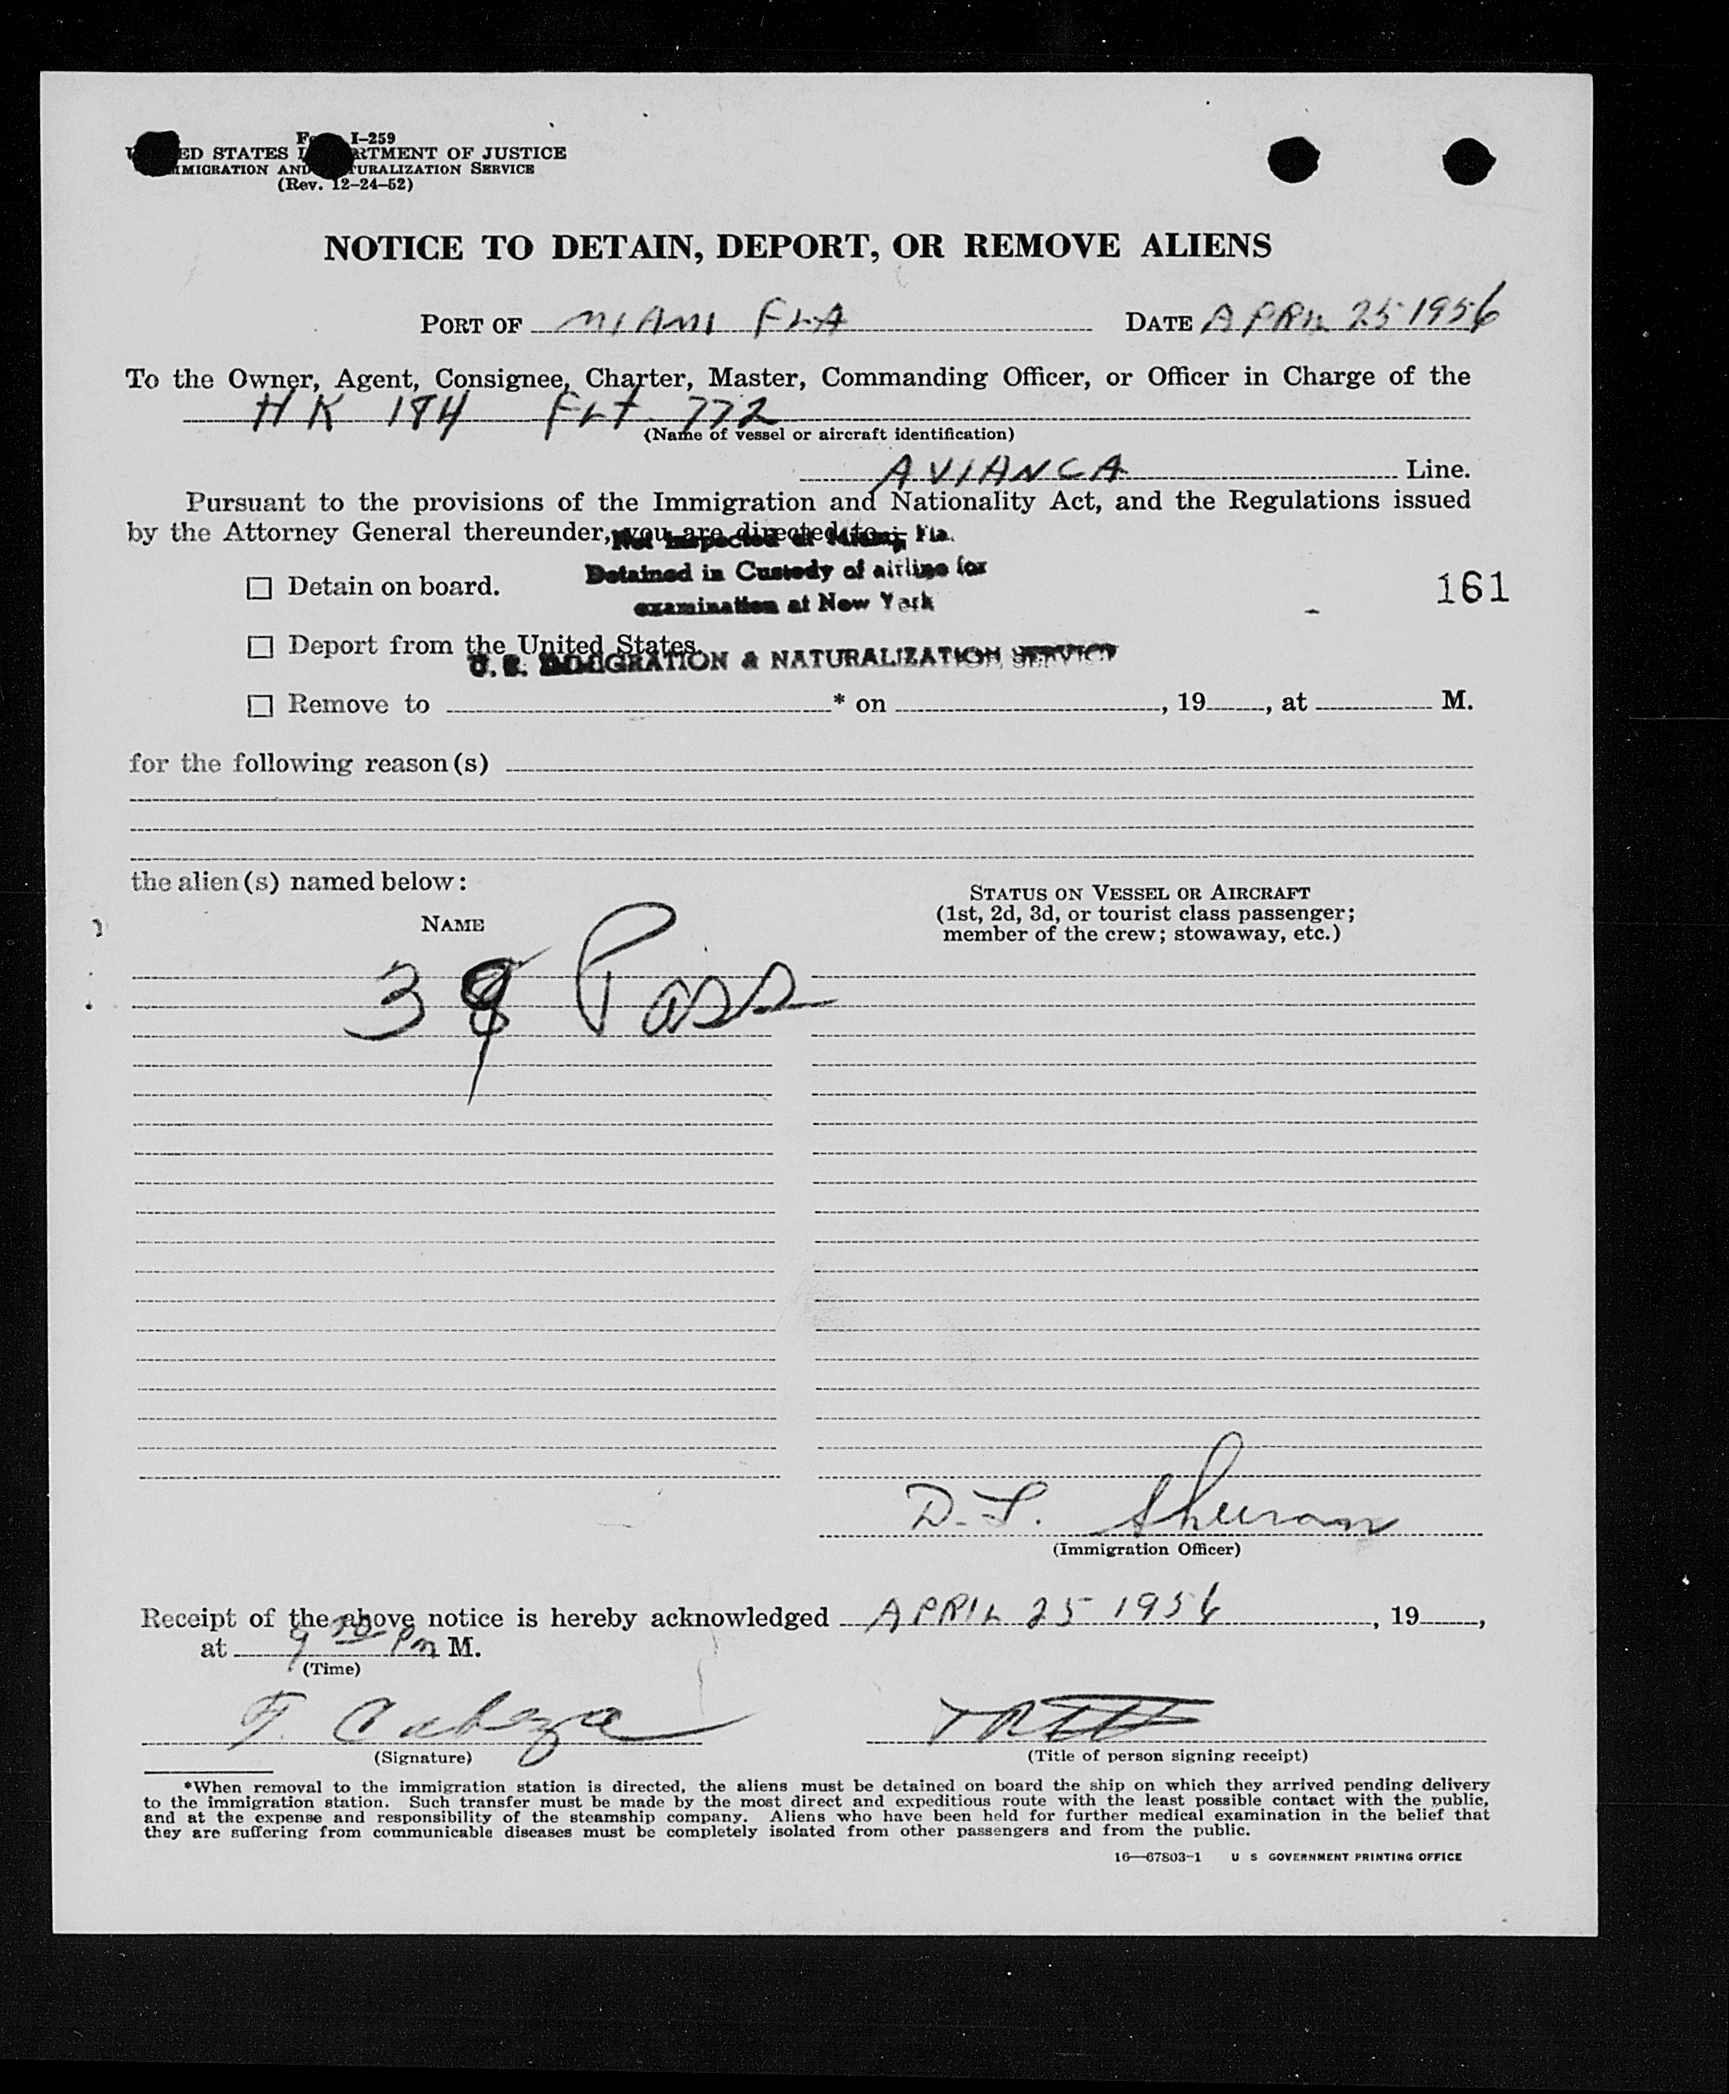 Form I-259
UNITED STATES DEPARTMENT OF JUSTICE
IMMIGRATION AND NATURALIZATION SERVICE
(Rev. 12-24-52)
NOTICE TO DETAIN, DEPORT, OR REMOVE ALIENS
PORT OF MIAMI FLA DATE APRIL 25 1956
To the Owner, Agent, Consignee, Charter, Master, Commanding Officer, or Officer in Charge of the
HK 174 FLT 772
(Name of vessel or aircraft identification)
AVIANCA Line.
Pursuant to the provisions of the Immigration and Nationality Act, and the Regulations issued
by the Attorney General thereunder, you are directed to:
Not Inspected at Miami, Fla.
Detained in Custody of airline for
examination at New York
161
☐ Detain on board.
☐ Deport from the United States.
U. S. IMMIGRATION & NATURALIZATION SERVICE
☐ Remove to * on , 19 , at M.
for the following reason(s)
the alien(s) named below:
NAME
STATUS ON VESSEL OR AIRCRAFT
(1st, 2d, 3d, or tourist class passenger;
member of the crew; stowaway, etc.)
39 Pass
D. L.
(Immigration Officer)
Receipt of the above notice is hereby acknowledged APRIL 25 1956 , 19 ,
at 9 PM M.
(Time)
F. Cabeza
(Signature)
(Title of person signing receipt)
*When removal to the immigration station is directed, the aliens must be detained on board the ship on which they arrived pending delivery
to the immigration station. Such transfer must be made by the most direct and expeditious route with the least possible contact with the public,
and at the expense and responsibility of the steamship company. Aliens who have been held for further medical examination in the belief that
they are suffering from communicable diseases must be completely isolated from other passengers and from the public.
16—67803-1 U S GOVERNMENT PRINTING OFFICE